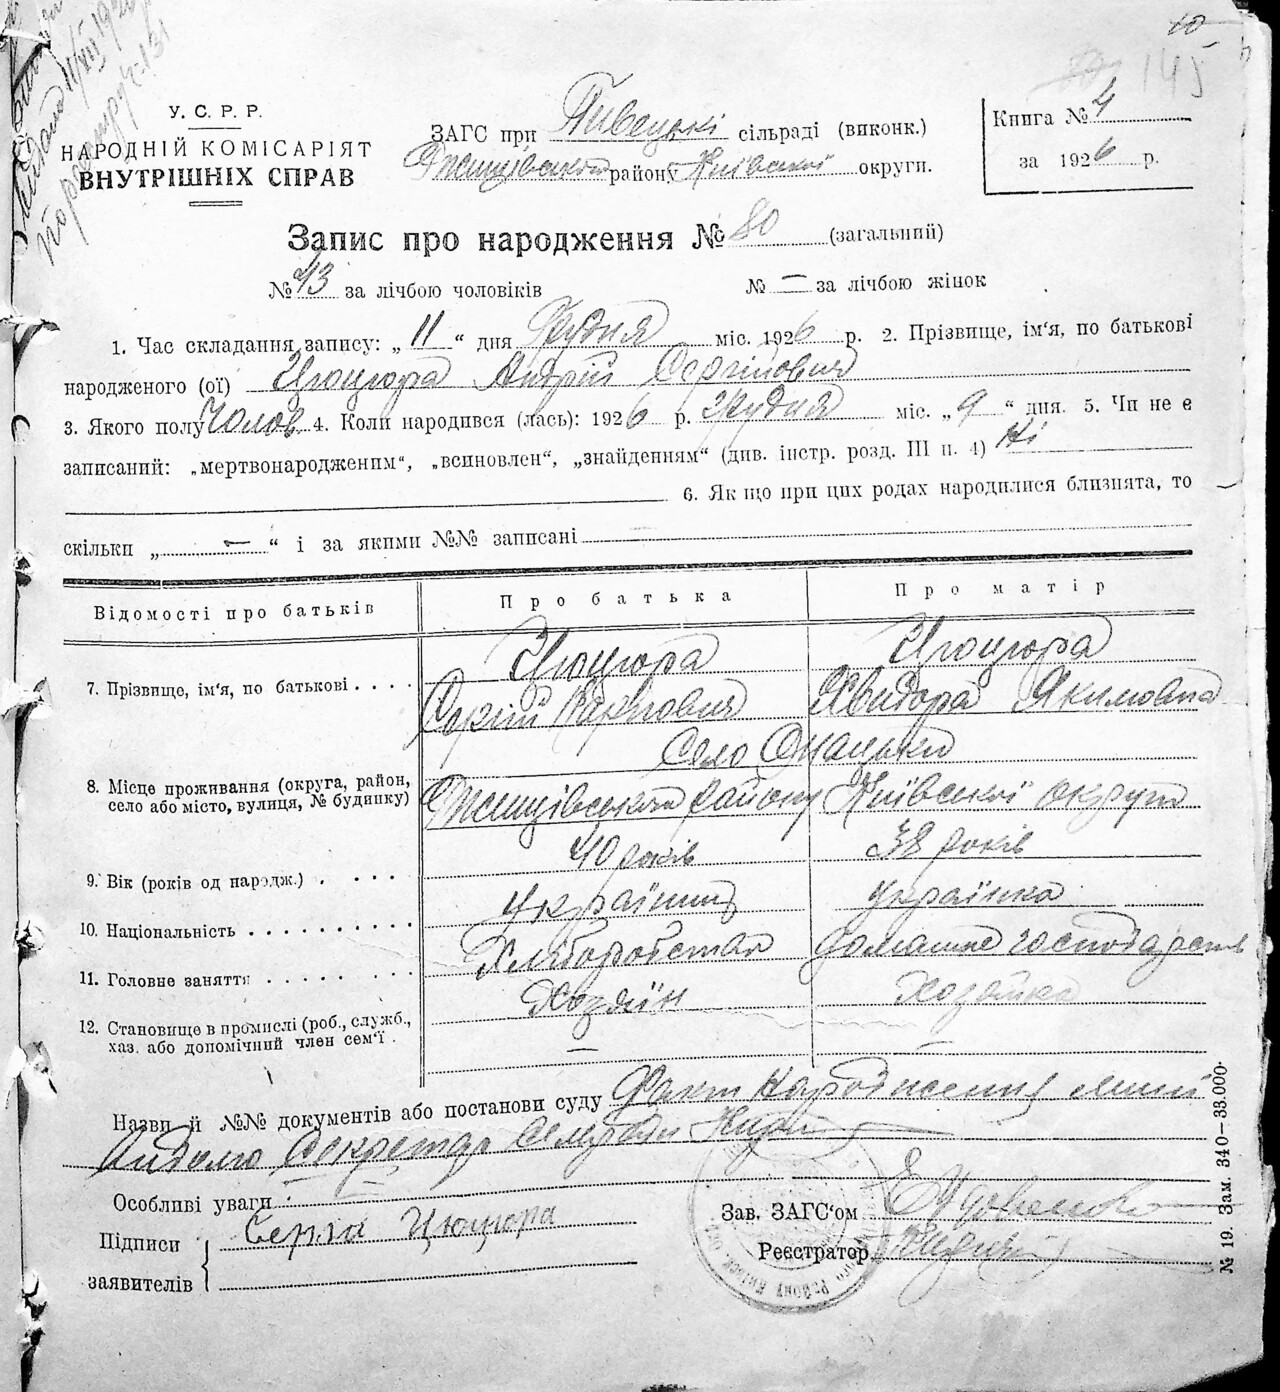 10
145
У. С. Р. Р.
НАРОДНІЙ КОМІСАРІЯТ
ВНУТРІШНІХ СПРАВ
ЗАГС при Пивецькі сільраді (виконк.)
району Київської округи.
Книга № 4
за 1926 р.
Запис про народження № 80 (загальний)
№ 43 за лічбою чоловіків № — за лічбою жінок
1. Час складання запису: „ 11 “ дня Грудня міс. 1926 р. 2. Прізвище, ім‘я, по батькові
народженого (ої) Цюцюра Андрій Сергійовия
3. Якого полу Чолов 4. Коли народився (лась): 1926 р. Грудня міс. „ 9 “ дня. 5. Чи не є
записаний: „мертвонародженим“, „всиновлен“, „знайденням“ (див. інстр. розд. III п. 4) Ні
6. Як що при цих родах народилися близнята, то
скільки „ — “ і за якими №№ записані —
Відомості про батьків Про батька Про матір
7. Прізвище, ім‘я, по батькові . . . .
Цюцюра Цюцюра
Сергій Карпович Явидора Якимовна
8. Місце проживання (округа, район, село або місто, вулиця, № будинку)
Село
району Київської округи
9. Вік (років од народж.) . . . . .
40 років 38 років
10. Національність . . . . . . . . . . .
Українець Українка
11. Головне заняття . . . . . . . .
Хліборобства домашнє господарств
12. Становище в промислі (роб., служб., хаз. або допомічний член сем‘ї .
Хозяїн Хозяйка
— —
Назви й №№ документів або постанови суду Факт народження мині
відомо Секретар Сельради
Особливі уваги
Підписи
заявителів
Серга Цюцюра
Зав. ЗАГС‘ом
Реєстратор
№ 19. Зам. 340—33.000